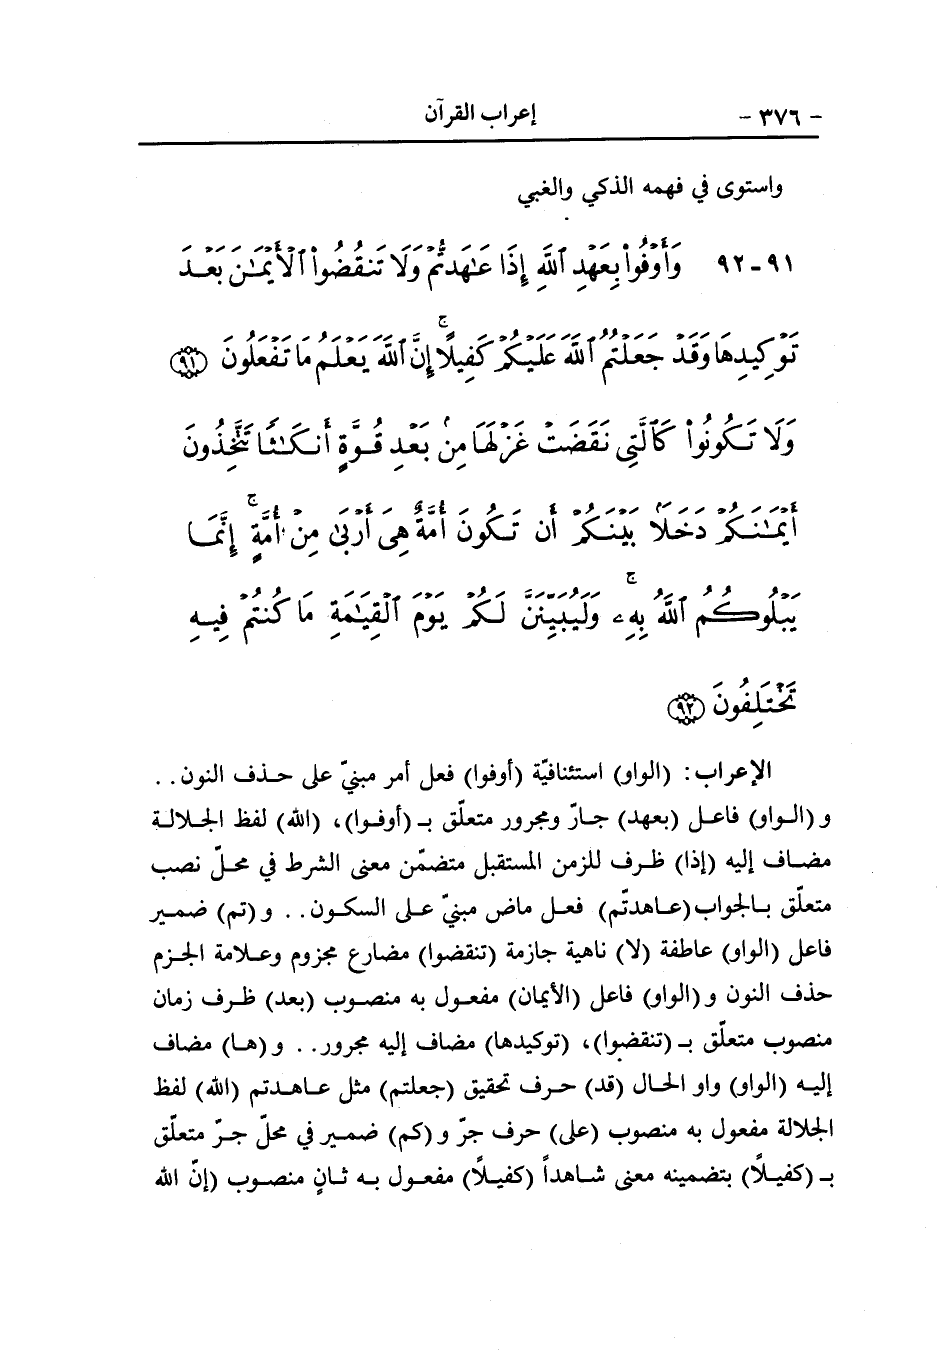 - ٣٧٦ - إعراب القرآن
واستوى في فهمه الذكي والغبي
٩١ - ٩٢ وَأَوْفُوا۟ بِعَهْدِ ٱللَّهِ إِذَا عَـٰهَدتُّمْ وَلَا تَنقُضُوا۟ ٱلْأَيْمَـٰنَ بَعْدَ
تَوْكِيدِهَا وَقَدْ جَعَلْتُمُ ٱللَّهَ عَلَيْكُمْ كَفِيلًا ۚ إِنَّ ٱللَّهَ يَعْلَمُ مَا تَفْعَلُونَ ﴿٩١﴾
وَلَا تَكُونُوا۟ كَٱلَّتِى نَقَضَتْ غَزْلَهَا مِنۢ بَعْدِ قُوَّةٍ أَنكَـٰثًا تَتَّخِذُونَ
أَيْمَـٰنَكُمْ دَخَلًۢا بَيْنَكُمْ أَن تَكُونَ أُمَّةٌ هِىَ أَرْبَىٰ مِنْ أُمَّةٍ ۚ إِنَّمَا
يَبْلُوكُمُ ٱللَّهُ بِهِۦ ۚ وَلَيُبَيِّنَنَّ لَكُمْ يَوْمَ ٱلْقِيَـٰمَةِ مَا كُنتُمْ فِيهِ
تَخْتَلِفُونَ ﴿٩٢﴾
الإعراب: (الواو) استئنافيّة (أوفوا) فعل أمر مبنيّ على حذف النون . .
و (الواو) فاعل (بعهد) جارّ ومجرور متعلّق بـ (أوفوا)، (الله) لفظ الجلالة
مضاف إليه (إذا) ظرف للزمن المستقبل متضمّن معنى الشرط في محلّ نصب
متعلّق بالجواب (عاهدتّم) فعل ماض مبنيّ على السكون . . و (تم) ضمير
فاعل (الواو) عاطفة (لا) ناهية جازمة (تنقضوا) مضارع مجزوم وعلامة الجزم
حذف النون و (الواو) فاعل (الأيمان) مفعول به منصوب (بعد) ظرف زمان
منصوب متعلّق بـ (تنقضوا)، (توكيدها) مضاف إليه مجرور . . و (ها) مضاف
إليه (الواو) واو الحال (قد) حرف تحقيق (جعلتم) مثل عاهدتم (الله) لفظ
الجلالة مفعول به منصوب (على) حرف جرّ و (كم) ضمير في محلّ جرّ متعلّق
بـ (كفيلاً) بتضمينه معنى شاهداً (كفيلاً) مفعول به ثانٍ منصوب (إنّ الله